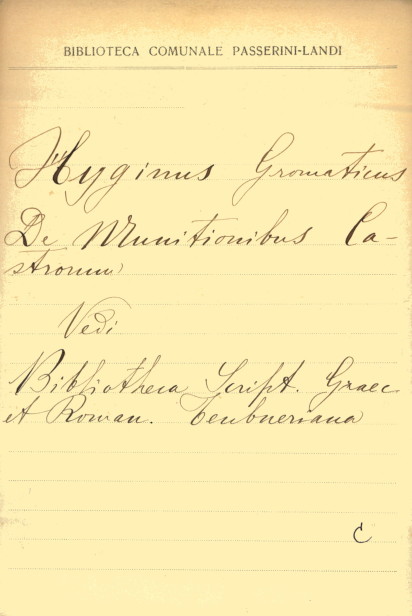 BIBLIOTECA COMUNALE PASSERINI-LANDI
Hyginus Gromaticus
De Munitionibus Ca-
strorum
Vedi
Bibliotheca Script. Graec
et Roman. Teubneriana
C